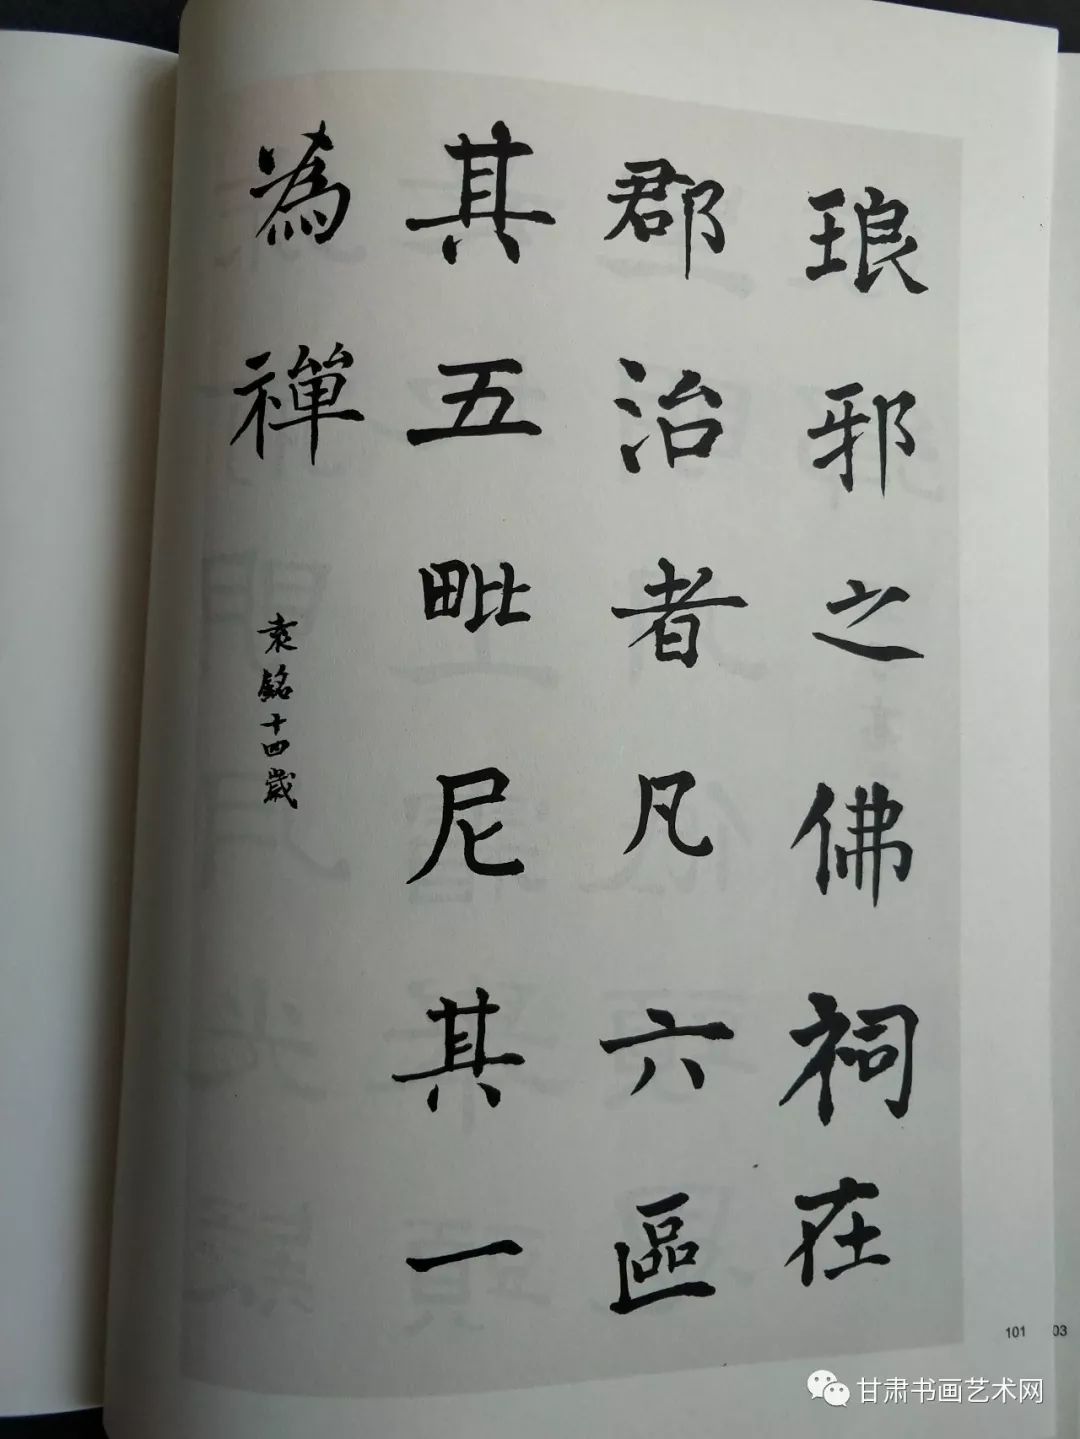 琅邪之佛祠在
郡治者凡六區
其五毗尼其一
為禪
袁銘十四歲
101
03
甘肃书画艺术网